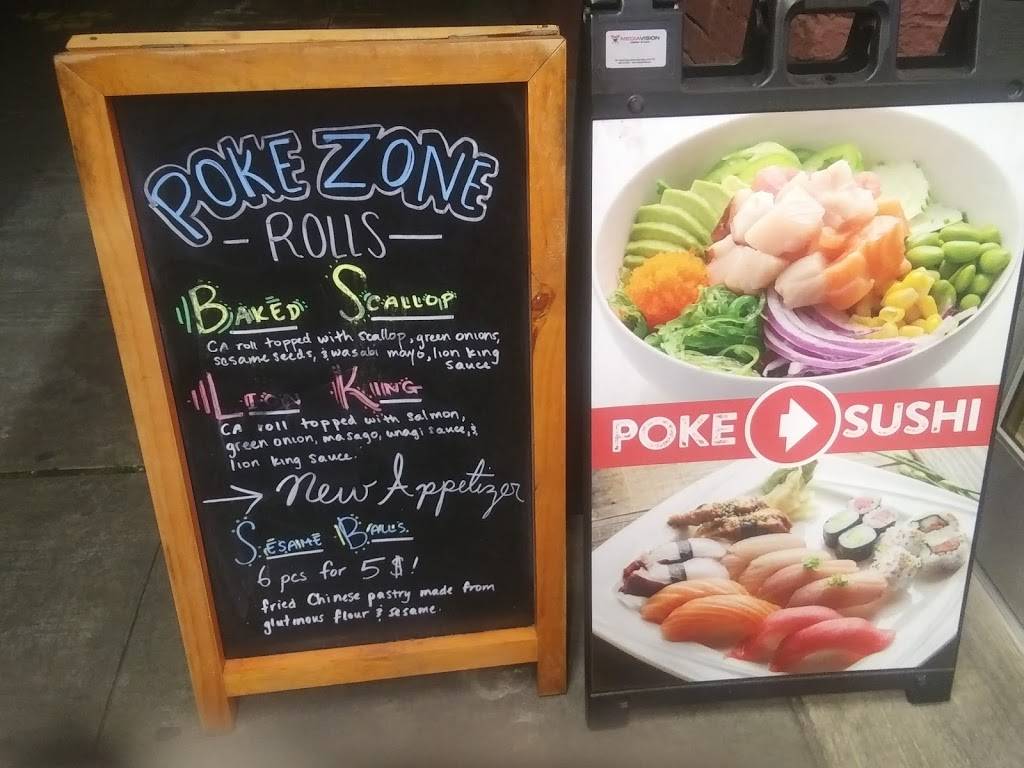 POKE ZONE
- ROLLS -
BAKED SCALLOP
CA roll topped with scallop, green onions,
sesame seeds, & wasabi mayo, lion king
sauce
LION KING
CA roll topped with salmon,
green onion, masago, unagi sauce, &
lion king sauce.
→ New Appetizer
SESAME BALLS
6 pcs for 5$!
fried Chinese pastry made from
glutinous flour & sesame.
MEDIAVISION
POKE → SUSHI